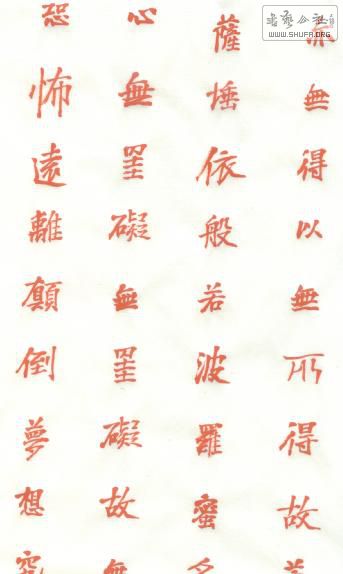 無得以無所得故
薩埵依般若波羅蜜多
心無罣礙無罣礙故無
恐怖遠離顛倒夢想究
WWW.SHUFA.ORG